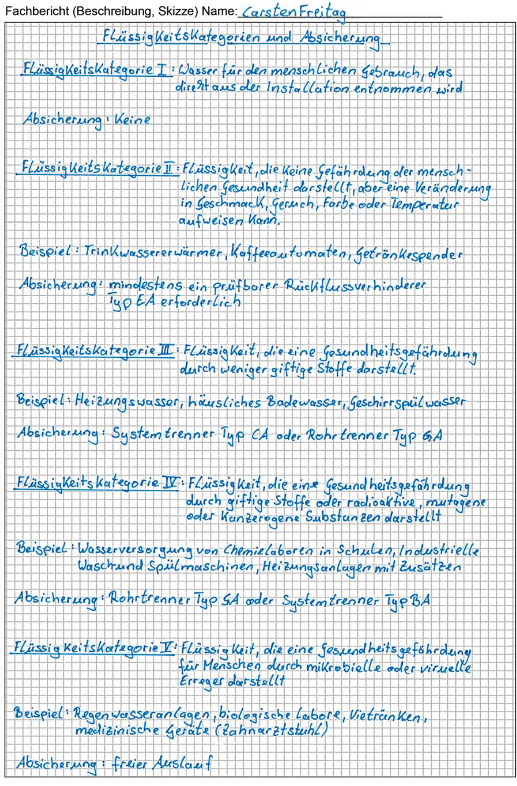 Fachbericht (Beschreibung, Skizze) Name: Carsten Freitag
Flüssigkeitskategorien und Absicherung
Flüssigkeitskategorie I: Wasser für den menschlichen Gebrauch, das
direkt aus der Installation entnommen wird
Absicherung: Keine
Flüssigkeitskategorie II: Flüssigkeit, die keine Gefährdung der mensch-
lichen Gesundheit darstellt, aber eine Veränderung
in Geschmack, Geruch, Farbe oder Temperatur
aufweisen kann.
Beispiel: Trinkwassererwärmer, Kaffeeautomaten, Getränkespender
Absicherung: mindestens ein prüfbarer Rückflussverhinderer
Typ EA erforderlich
Flüssigkeitskategorie III: Flüssigkeit, die eine Gesundheitsgefährdung
durch weniger giftige Stoffe darstellt.
Beispiel: Heizungswasser, häusliches Badewasser, Geschirrspülwasser
Absicherung: Systemtrenner Typ CA oder Rohrtrenner Typ GA
Flüssigkeitskategorie IV: Flüssigkeit, die eine Gesundheitsgefährdung
durch giftige Stoffe oder radioaktive, mutagene
oder kanzerogene Substanzen darstellt
Beispiel: Wasserversorgung von Chemielaboren in Schulen, Industrielle
Wasch und Spülmaschinen, Heizungsanlagen mit Zusätzen
Absicherung: Rohrtrenner Typ GA oder Systemtrenner Typ BA
Flüssigkeitskategorie V: Flüssigkeit, die eine Gesundheitsgefährdung
für Menschen durch mikrobielle oder viruelle
Erreger darstellt
Beispiel: Regenwasseranlagen, biologische Labore, Vietränken,
medizinische Geräte (Zahnarztstuhl)
Absicherung: freier Auslauf